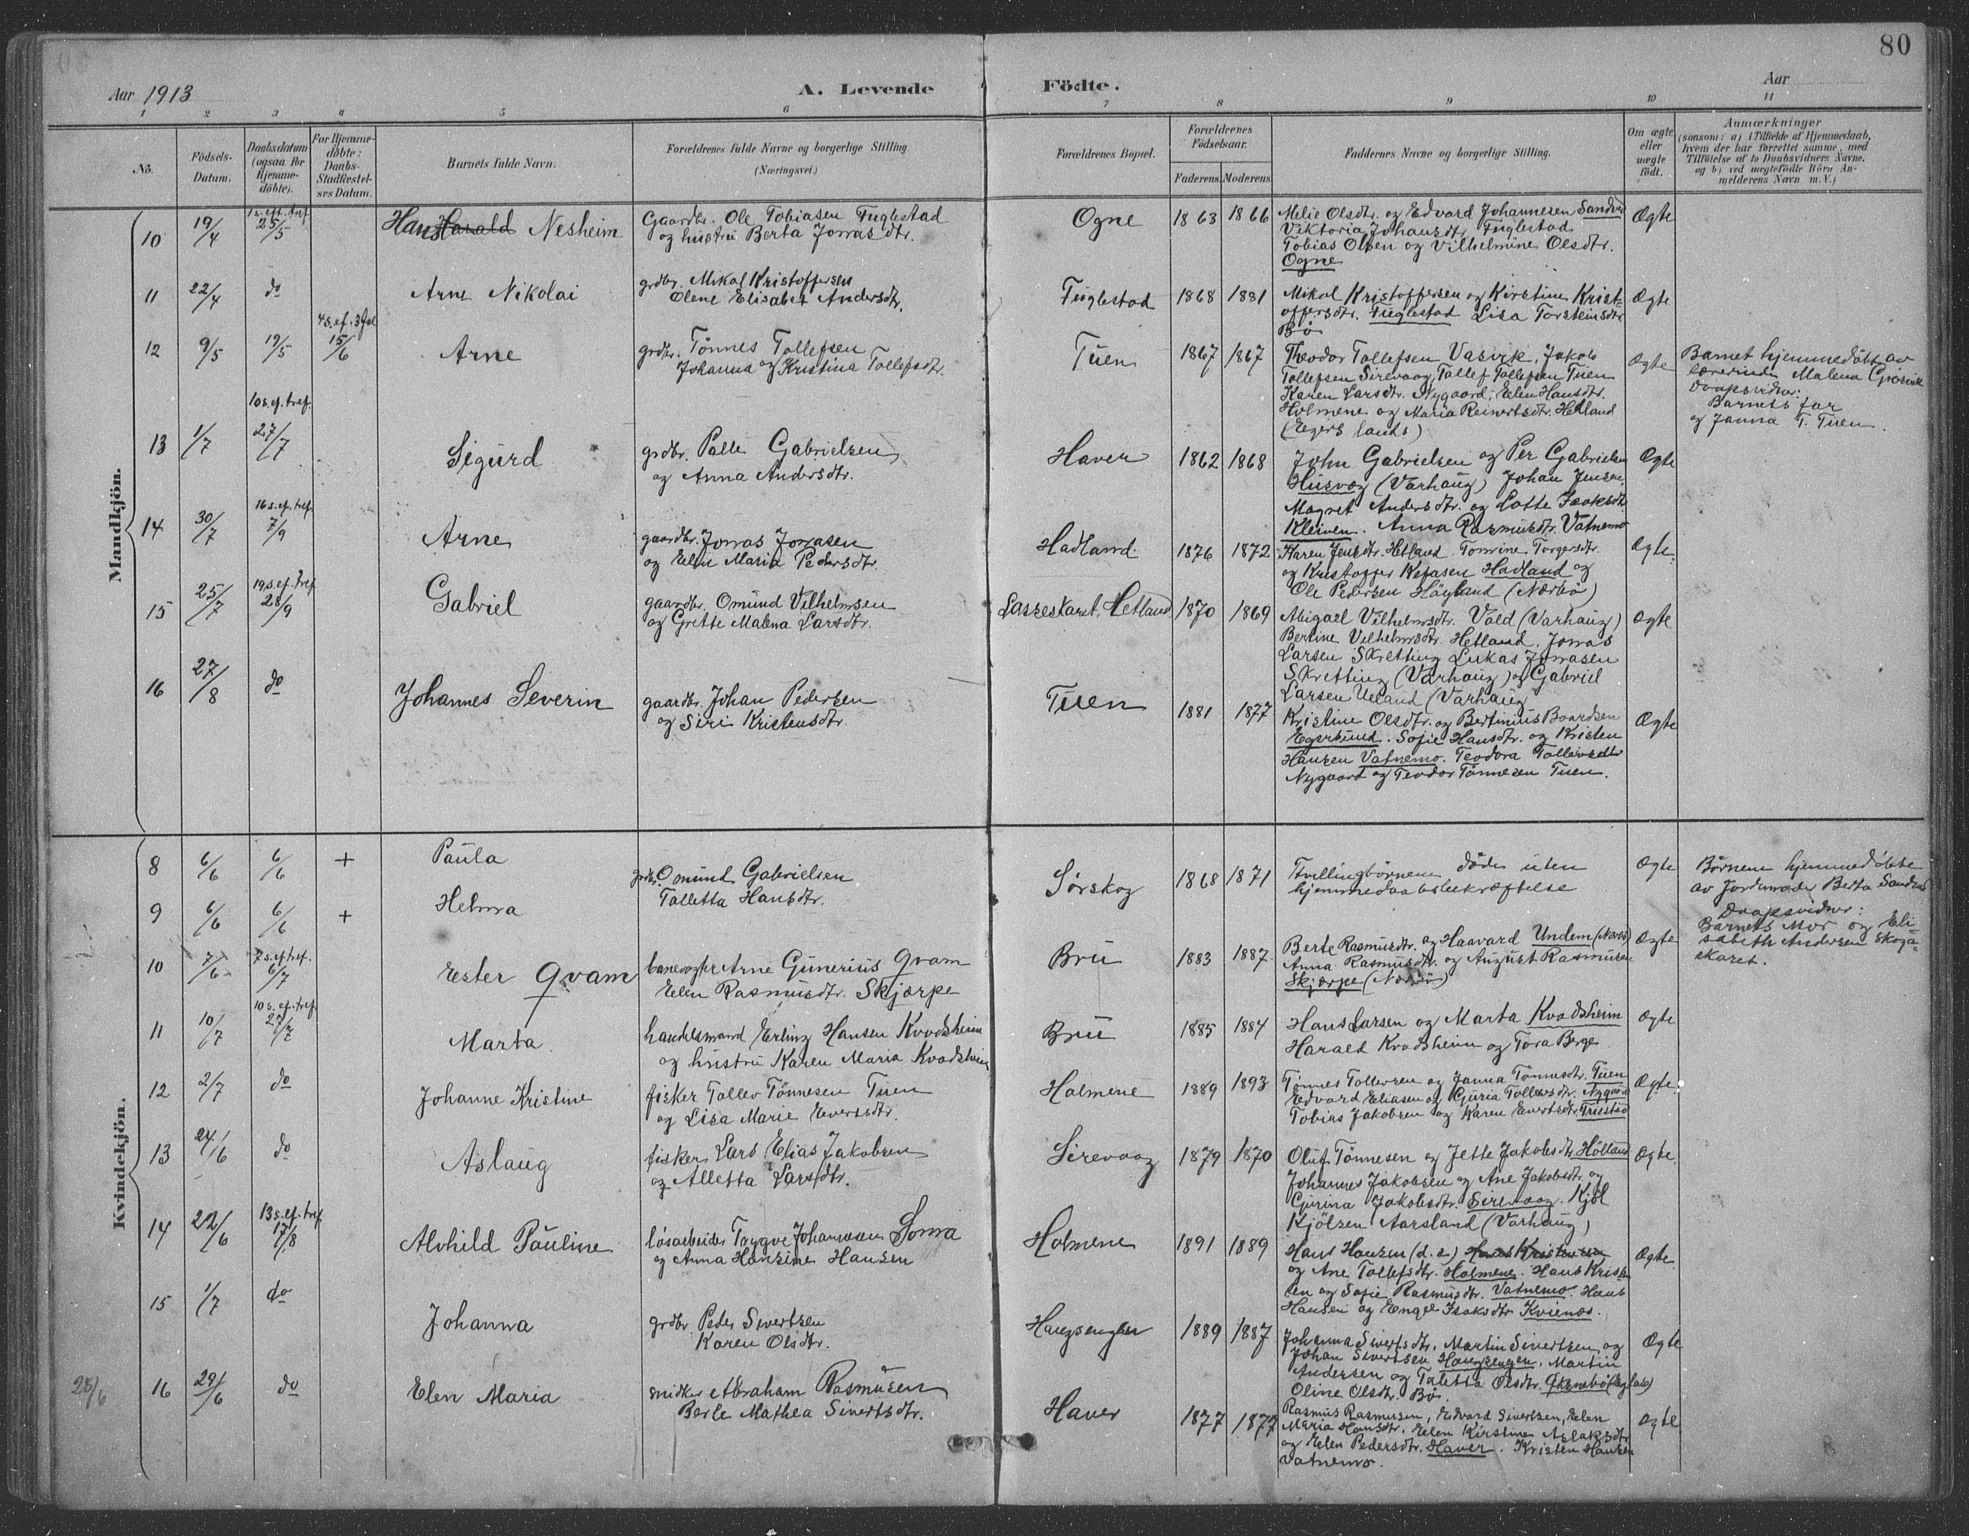 80
Aar 1913
A. Levende
Födte.
Aar
1 2 3 4 5 6 7 8 9 10 11
No.
Födsels-
Datum.
Daabsdatum
(ogsaa for
Hjemme-
döbte).
For Hjemme-
döbte:
Daabs-
Stadfæstel-
ses Datum.
Barnets fulde Navn.
Forældrenes fulde Navne og borgerlige Stilling
(Næringsvei.)
Forældrenes Bopæl.
Forældrenes
Födselsaar.
Faderens. Moderens.
Faddernes Navne og borgerlige Stilling.
Om ægte
eller
uægte
födt.
Anmærkninger
(saasom: a) i Tilfælde af Hjemmedaab,
hvem der har forrettet samme, med
Tilföielse af to Daabsvidners Navne,
og b) ved uægtefödte Börn An-
melderens Navn m. V.)
Mandkjön.
10 19/4 1 s. eft. tref. 25/5 Hans Harald Nesheim
Gaardbr. Ole Tobiasen Fuglestad
og hustru Berta Jonasdtr.
Ogne 1863 1866
Melie Olsdtr. og Edvard Johannesen Sandvo
Viktoria Johansdtr. Fuglestad
Tobias Olsen og Vilhelmine Olsdtr.
Ogne
Ægte
11 22/4 do Arne Nikolai
grdbr. Mikal Kristoffersen
Elene Elisabet Andersdtr.
Fuglestad 1868 1881
Mikal Kristoffersen og Kirstine Krist-
offersdtr. Fuglestad Lisa Torsteinsdtr
Bö
Ægte
12 9/5 19/5 4 s. ef. 3 fol 15/6 Arne
grdbr. Tönnes Tollefsen
Johanna og Kristina Tollefsdtr.
Tuen 1867 1867
Theodor Tollefsen Vasvik, Jakob
Tollefsen Sirevaag, Tollef Tollefsen Tuen
Karen Larsdtr. Nygaard, Elen Hansdtr.
Holmene og Maria Reinertsdtr. Hetland
(Egerslands)
Ægte
Barnet hjemmedöbt av
lærerinde Malena
Daapsvidner:
Barnets far
og Janna T. Tuen.
13 1/7 10 s. ef. tref. 27/7 Sigurd
grdbr. Palle Gabrielsen
og Anna Andersdtr.
Haver 1862 1868
John Gabrielsen og Per Gabrielsen
Husvæg (Varhaug) Johan Jensen
Magret Andersdtr. og Lotte Isaksdtr
Kleiven. Anna Rasmusdtr. Vatnemo
Ægte
14 30/7 16 s. ef. tref. 7/9 Arne
gaardbr. Jonas Jonasen
og Elen Maria Pedersdtr.
Hadland. 1876 1872
Karen Jensdtr. Hetland. Tomine Torgersdtr.
og Kristoffer Kefasen Hadland og
Ole Pedersen Höyland (Nærbö)
Ægte.
15 25/7 19 s. ef. tref. 28/9 Gabriel
gaardbr. Omund Vilhelmsen
og Grette Malena Larsdtr.
Lasseskaret. Hetland 1870 1869
Abigael Vilhelmsdtr. Vold (Varhaug)
Bertine Vilhelmsdtr. Hetland. Jonas
Larsen Skretting Lukas Jonasen
Skretting (Varhaug) og Gabriel
Larsen Ueland (Varhaug)
Ægte
16 27/8 do Johannes Severin
gaardbr. Johan Pedersen
og Siri Kristensdtr.
Tuen 1881 1877
Kristine Olsdtr. og Bertinius Baardsen
Egersund. Sofie Hansdtr. og Kristen
Hansen Vatnemo. Teodora Tollevsdtr
Nygaard og Teodor Tönnesen Tuen.
Ægte
Kvindekjön.
8 6/6 6/6 + Paula
grdbr. Omund Gabrielsen
Talletta Hansdtr.
Sörskog 1868 1871
Tvillingbörnene döde uten
hjemmedaabsbekræftelse
Ægte
Börnene hjemmedöbte
av Jordemoder Berta Sandnes
Daapsvidner:
Barnets Mor og Eli-
sabeth Andersen Skoga-
skaret.
9 6/6 6/6 + Helma
10 7/6 7 s. ef. tref. 6/7 Ester Qvam
banevogter Arne Gunerius Qvam
Elen Rasmusdtr. Skjærpe
Bru 1883 1887
Berte Rasmusdtr. og Haavard Undem (Nærbö)
Anna Rasmusdtr. og August Rasmusen
Skjærpe (Nærbö)
Ægte
11 10/7 10 s. ef. tref. 27/7 Marta
handelsmand Erling Hansen Kvadsheim
og hustru Karen Maria Kvadsheim
Bru 1885 1884
Hans Larsen og Marta Kvadsheim
Harald Kvadsheim og Tora Berge
Ægte
12 2/7 do Johanne Kristine
fisker Tollev Tönnesen Tuen
og Lisa Marie Evertsdtr.
Holmene 1889 1893
Tönnes Tollevsen og Janna Tönnesdtr. Tuen
Edvard Eliasen og Guria Tollevsdtr. Nygaard
Tobias Jakobsen og Karen Evertsdtr.
Ægte
13 24/6 do Aslaug
fisker Lars Elias Jakobsen
og Alletta Larsdtr.
Sirevaag 1879 1870
Oluf Tönnesen og Jette Jakobsdtr. Hölland
Johannes Jakobsen og Ane Jakobsdtr. og
Gurina Jakobsdtr. Sirevaag. Kjöl
Kjölsen Aarsland (Varhaug)
Ægte.
14 22/6 13 s. ef. tref 17/8 Alvhild Pauline
lösarbeider Trygve Johannesen Soma
og Anna Hansine Hansen
Holmene 1891 1889
Hans Hansen (d. e.) Hans Kristensen
og Ane Tollefsdtr. Holmene. Hans Krist-
en og Sofie Rasmusdtr. Vatnemo. Hans
Hansen og Engel Isaksdtr Kvienes.
Ægte
15 1/7 do Johanna
grdbr Peder Sivertsen
Karen Olsdtr.
Haugsengen 1889 1887
Johanna Sivertsdtr, Martin Sivertsen og
Johan Sivertsen Haugsengen, Martin
Andersen og Taletta Olsdtr.
Oline Olsdtr. Bö
Ægte
28/6
16 29/6 do Elen Maria
snidker Abraham Rasmusen
Berte Mathea Sivertsdtr.
Haver 1877 1877
Rasmus Rasmusen, Edvard Sivertsen, Elen
Maria Hansdtr. Elen Kirstine Aslaksdtr
og Elen Pedersdtr. Haver. Kristen Hansen
Vatnemo.
Ægte